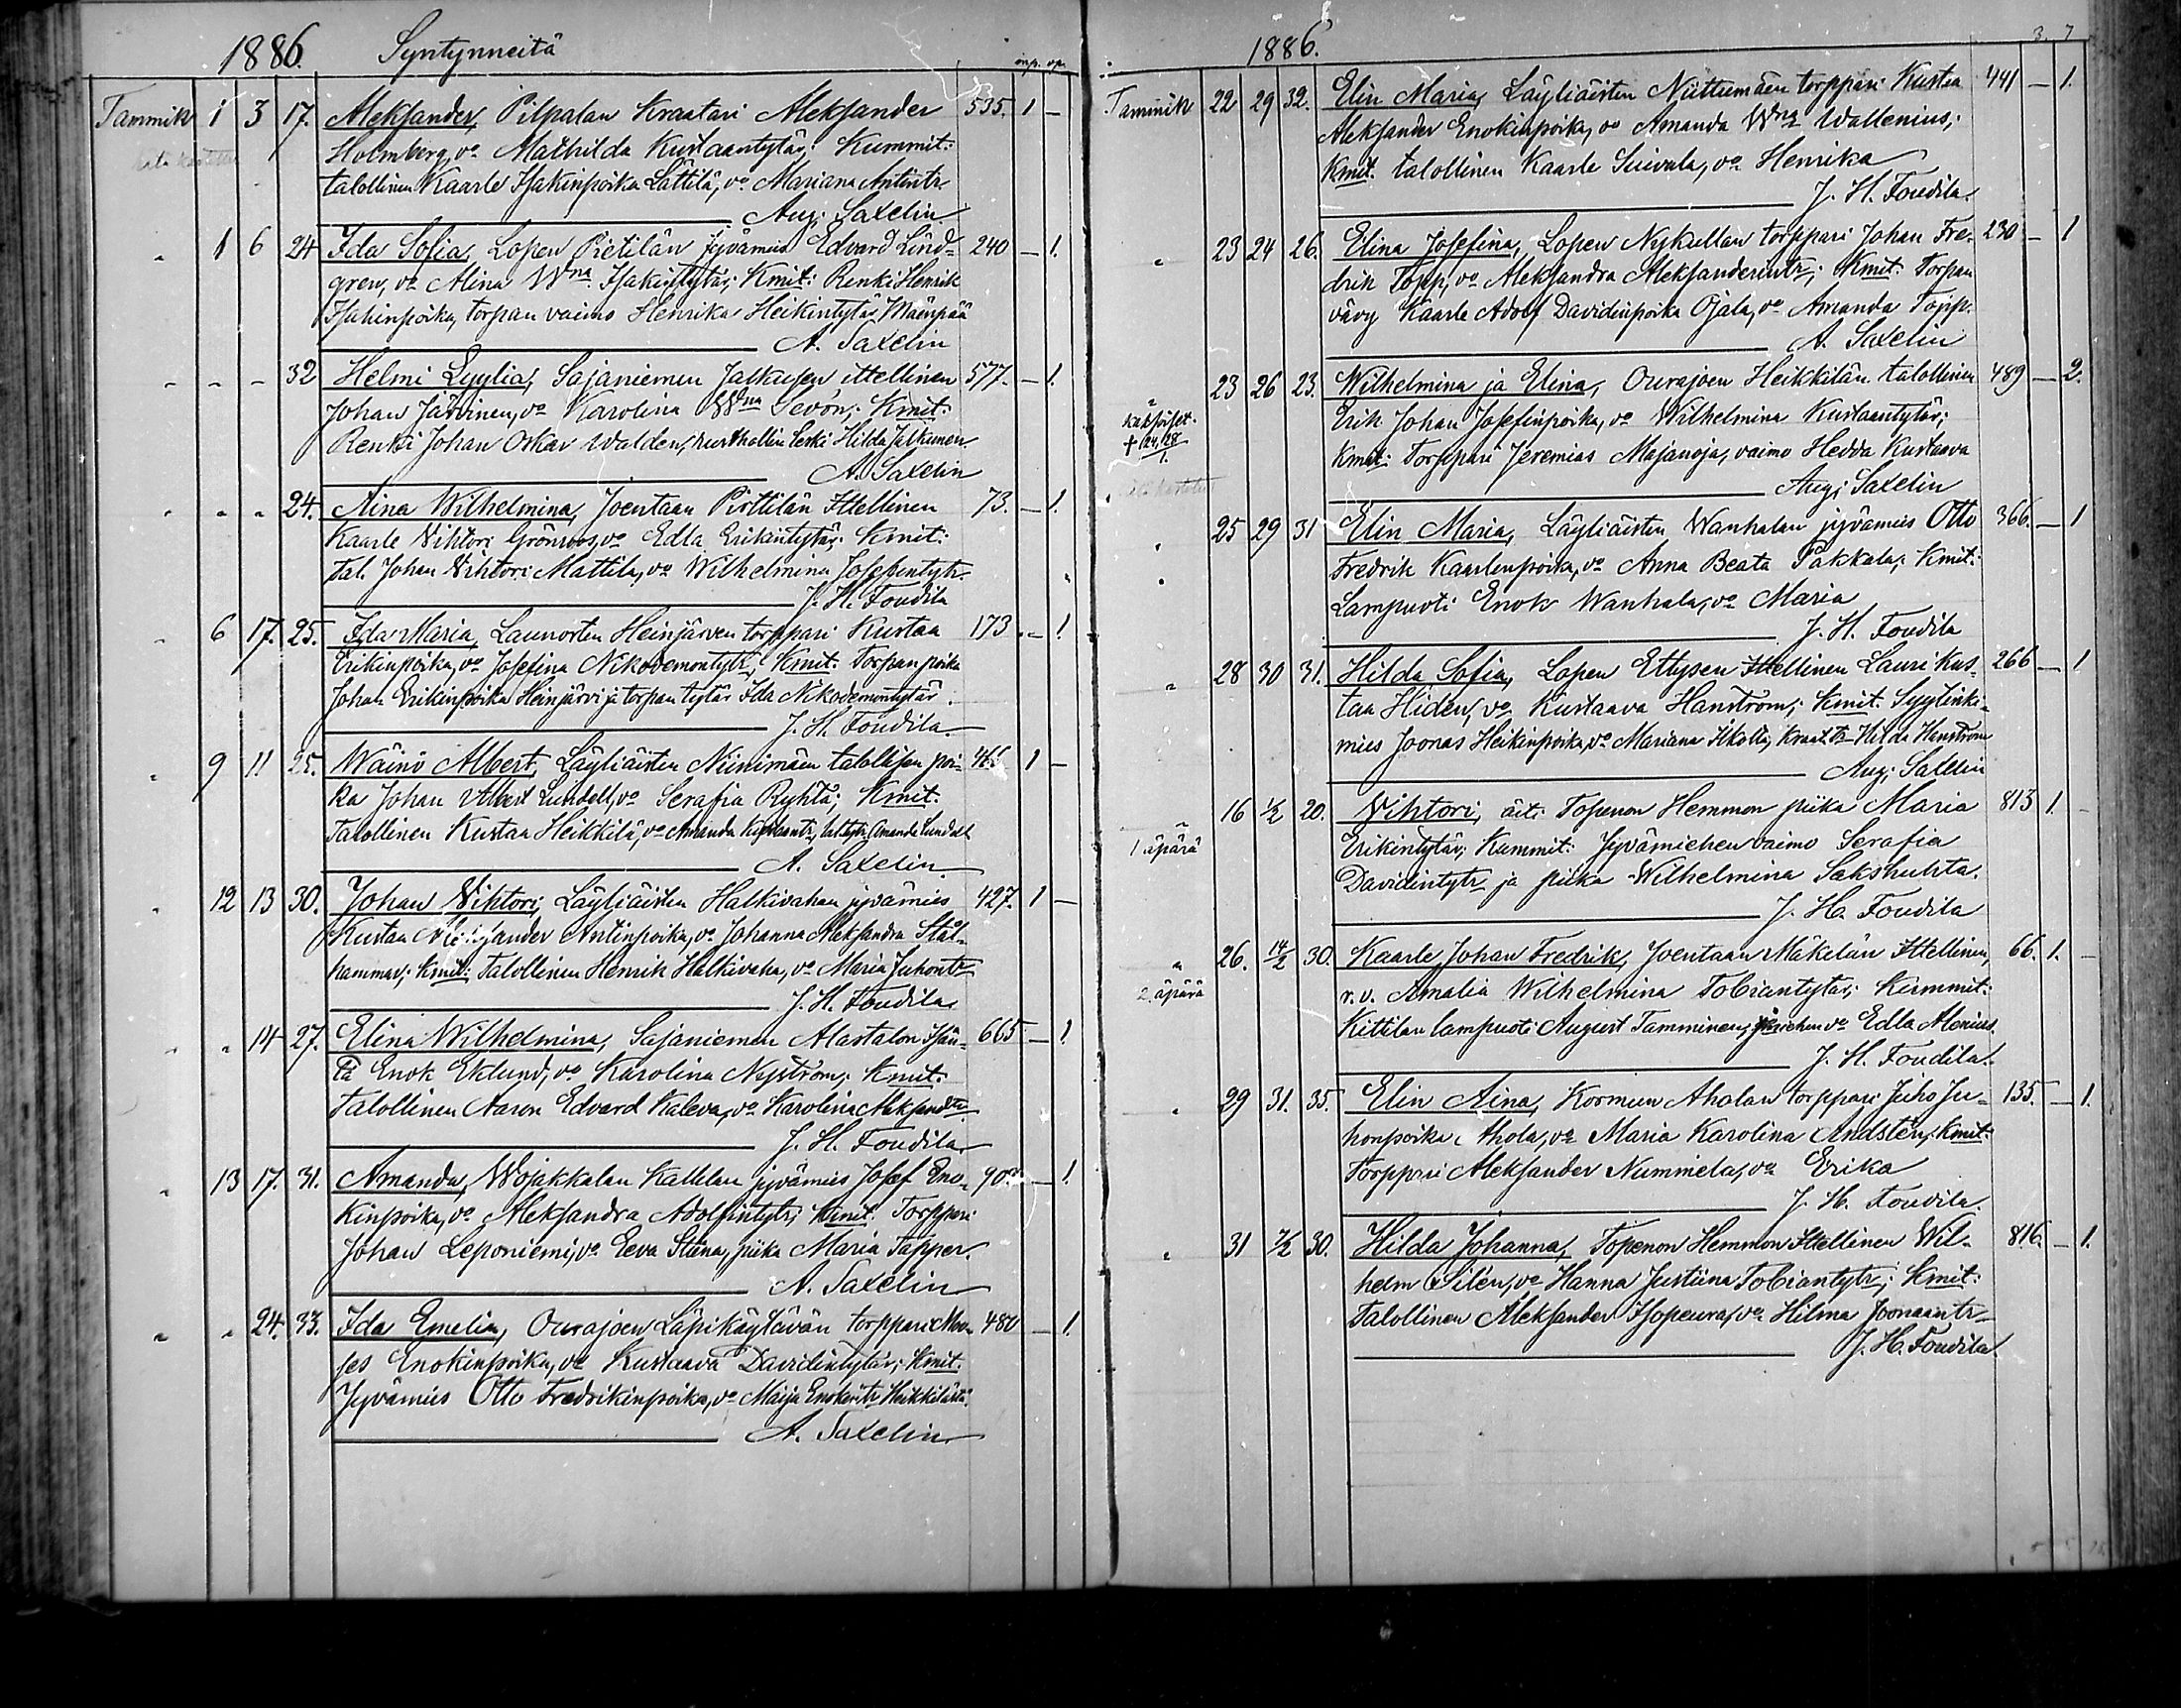 1886. Syntynneitä
mp. vp.
Tammik 1 3 17. Aleksander, Pilpalan Kraatari Aleksander 535. 1 –
Holmberg, vo Mathilda Kustaantytär; Kummit:
talollinen Kaarle Isakinpoika Lättilä, vo Mariana Antintr.
Aug. Saxelin
" 1 6 24 Ida Sofia, Lopen Pietilän jyvämies Edvard Lind- 240 – 1.
gren, vo Alina Wna Isakintytär; Kmit: Renki Henrik
Isakinpoika, torpan vaimo Henrika Heikintytär Mäenpää
A. Saxelin
" " " 32 Helmi Lyylia, Sajaniemen Jalkusen ittellinen 577. – 1.
Johan Järvinen, vo Karolina Wna Sevón; Kmit:
Renki Johan Oskar Walden, rusthollin leski Hilda Jalkunen
A. Saxelin
" " " 24. Aina Wilhelmina, Joentaan Pirttilän Ittellinen 73. – 1.
Kaarle Vihtori Grönroos, vo Edla Erikintytär; Kmit:
tal. Johan Vihtori Mattila, vo Wilhelmina Josefintytr.
J. H. Foudila
" 6 17. 25. Ida Maria, Launosten Heinjärven torppari Kustaa 173. – 1.
Erikinpoika, vo Josefina Nikodemontytr; Kmit: Torpanpoika
Johan Erikinpoika Heinjärvi ja torpan tytär Ida Nikodemontytär.
J. H. Foudila.
" 9 11 25. Wäinö Albert, Läyliäisten Niinimäen talollisen poi- 466 1 –
ka Johan Albert Lundell, vo Serafia Ryhtä; Kmit:
Talollinen Kustaa Heikkilä, vo Amanda Kustaantr, tal.tytr. Amanda Lundell
A. Saxelin.
" 12 13 30. Johan Vihtori, Läyliäisten Halkivahan jyvämies 427. 1 –
Kustaa Aleksander Antinpoika, vo Johanna Aleksandra Stål-
hammar; Kmit: Talollinen Henrik Halkivaha, vo Maria Juhontr.
J. H. Foudila
" " 14 27. Elina Wilhelmina, Sajaniemen Alastalon Isän- 665 – 1.
tä Enok Eklund, vo Karolina Nyström; Kmit:
Talollinen Aaron Edvard Kaleva, vo Karolina Aleksandtr.
J. H. Foudila.
" 13 17. 31. Amanda, Wojakkalan Kallelan jyvämies Josef Eno- – 1.
kinpoika, vo Aleksandra Adolfintytr; Kmit: Torppari
Johan Leponiemi, vo Eeva Stiina, piika Maria Tapper.
A. Saxelin
" " 24. 33. Ida Emelia, Ourajoen Läpikäytävän torppari Moo- 480 – 1.
ses Enokinpoika, vo Kustaava Davidintytär; Kmit:
Jyvämies Otto Fredrikinpoika, vo Maija Enokintr Heikkilästä.
A. Saxelin
1886.
3. 7
Tammik 22 29 32. Elin Maria, Läyliäisten Niittumäen torppari Kustaa 441 – 1.
Aleksander Enokinpoika, vo Amanda Wna Wallenius;
Kmit: talollinen Kaarle Suivala, vo Henrika
J. H. Foudila.
" 23 24 26. Elina Josefina, Lopen Nykullan torppari Johan Fre- 230 – 1
drik Topp, vo Aleksandra Aleksanderintr; Kmit: Torpan
vävy Kaarle Adolf Davidinpoika Ojala, vo Amanda Topp.
A. Saxelin
" 23 26 23. Wilhelmina ja Elina, Ourajoen Heikkilän talollinen 489 – 2.
kaksoiset.
+ 24, 28
1.
Erik Johan Josefinpoika, vo Wilhelmina Kustaantytär;
Kmit: Torppari Jeremias Majanoja, vaimo Hedda Kustaava
Aug. Saxelin
" 25 29 31 Elin Maria, Läyliäisten Wanhalan jyvämies Otto 366. – 1
Fredrik Kaarlenpoika, vo Anna Beata Pakkala; Kmit:
Lampuoti Enok Wanhala, vo Maria
J. H. Foudila
" 28 30 31. Hilda Sofia, Lopen Ettysen Ittellinen Lauri Kus- 266 – 1
taa Hiden, vo Kustaava Hanström; Kmit: Syytinki-
mies Joonas Heikinpoika, vo Mariana, Kraat. tr Hilda Hanström
Aug. Saxelin
" 16 1/2 20. Vihtori, äiti: Topenon Hemmon piika Maria 813 1. –
1 äpärä
Erikintytär; Kummit: Jyvämiehen vaimo Serafia
Davidintytr. ja piika Wilhelmina Sakshuhta.
J. H. Foudila
" 26. 14/2 30. Kaarle Johan Fredrik, Joentaan Mäkelän Ittellinen, 66. 1. –
2 äpärä
r.v. Amalia Wilhelmina Tobiantytär; Kummit:
Kittilan lampuoti August Tamminen, vo Edla Alenius.
J. H. Foudila.
" 29 31. 35. Elin Aina, Kormun Aholan torppari Juho Ju- 135. – 1.
honpoika Ahola, vo Maria Karolina Andstén; Kmit:
Torppari Aleksander Nummela, vo Erika
J. H. Foudila.
" 31 7/2 30. Hilda Johanna, Topenon Hemmon Ittellinen Wil- 816. – 1.
helm Silén, vo Hanna Justiina Tobiantytr; Kmit:
Talollinen Aleksander Isopeura, vo Hilma Joonaantr.
J. H. Foudila.